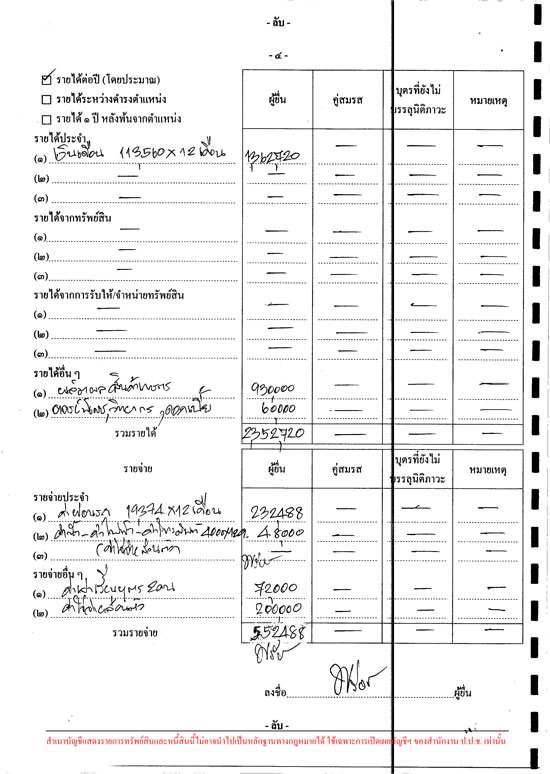 - ลับ -
- ๔ -
☑ รายได้ต่อปี (โดยประมาณ)
☐ รายได้ระหว่างดำรงตำแหน่ง
☐ รายได้ ๑ ปี หลังพ้นจากตำแหน่ง
ผู้ยื่น คู่สมรส บุตรที่ยังไม่บรรลุนิติภาวะ หมายเหตุ
รายได้ประจำ
(๑) เงินเดือน 113560 x 12 เดือน 1362720 — — —
(๒) — — — — —
(๓) — — — — —
รายได้จากทรัพย์สิน
(๑) — — — — —
(๒) — — — — —
(๓) — — — — —
รายได้จากการรับให้/จำหน่ายทรัพย์สิน
(๑) — — — — —
(๒) — — — — —
(๓) — — — — —
รายได้อื่น ๆ
(๑) 930000 — — —
(๒) 60000 — — —
รวมรายได้ 2352720 — — —
รายจ่าย ผู้ยื่น คู่สมรส บุตรที่ยังไม่บรรลุนิติภาวะ หมายเหตุ
รายจ่ายประจำ
(๑) ค่าผ่อนรถ 19374 x 12 เดือน 232488 — — —
(๒) ค่าน้ำ - ค่าไฟฟ้า - ค่าโทรศัพท์ 4000x12 48000 — — —
(๓) — — — —
รายจ่ายอื่น ๆ
(๑) 72000 — — —
(๒) ค่าใช้จ่ายส่วนตัว 200000 — — —
รวมรายจ่าย 552488 — — —
ลงชื่อ ผู้ยื่น
- ลับ -
สำเนาบัญชีแสดงรายการทรัพย์สินและหนี้สินนี้ไม่อาจนำไปเป็นหลักฐานทางกฎหมายได้ ใช้เฉพาะการเปิดเผยบัญชีฯ ของสำนักงาน ป.ป.ช. เท่านั้น